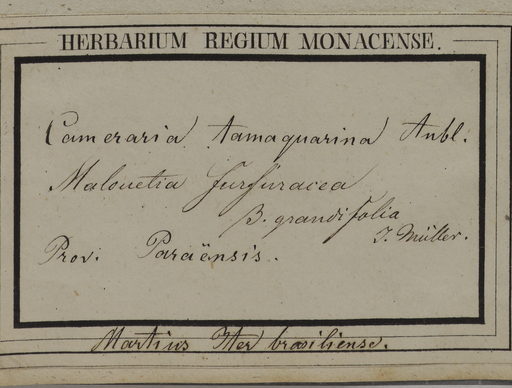 HERBARIUM REGIUM MONACENSE.
Cameraria tamaquarina Aubl.
Malouetia furfuracea
β. grandifolia
J. Müller.
Prov. Paraënsis.
Martius Iter brasiliense.